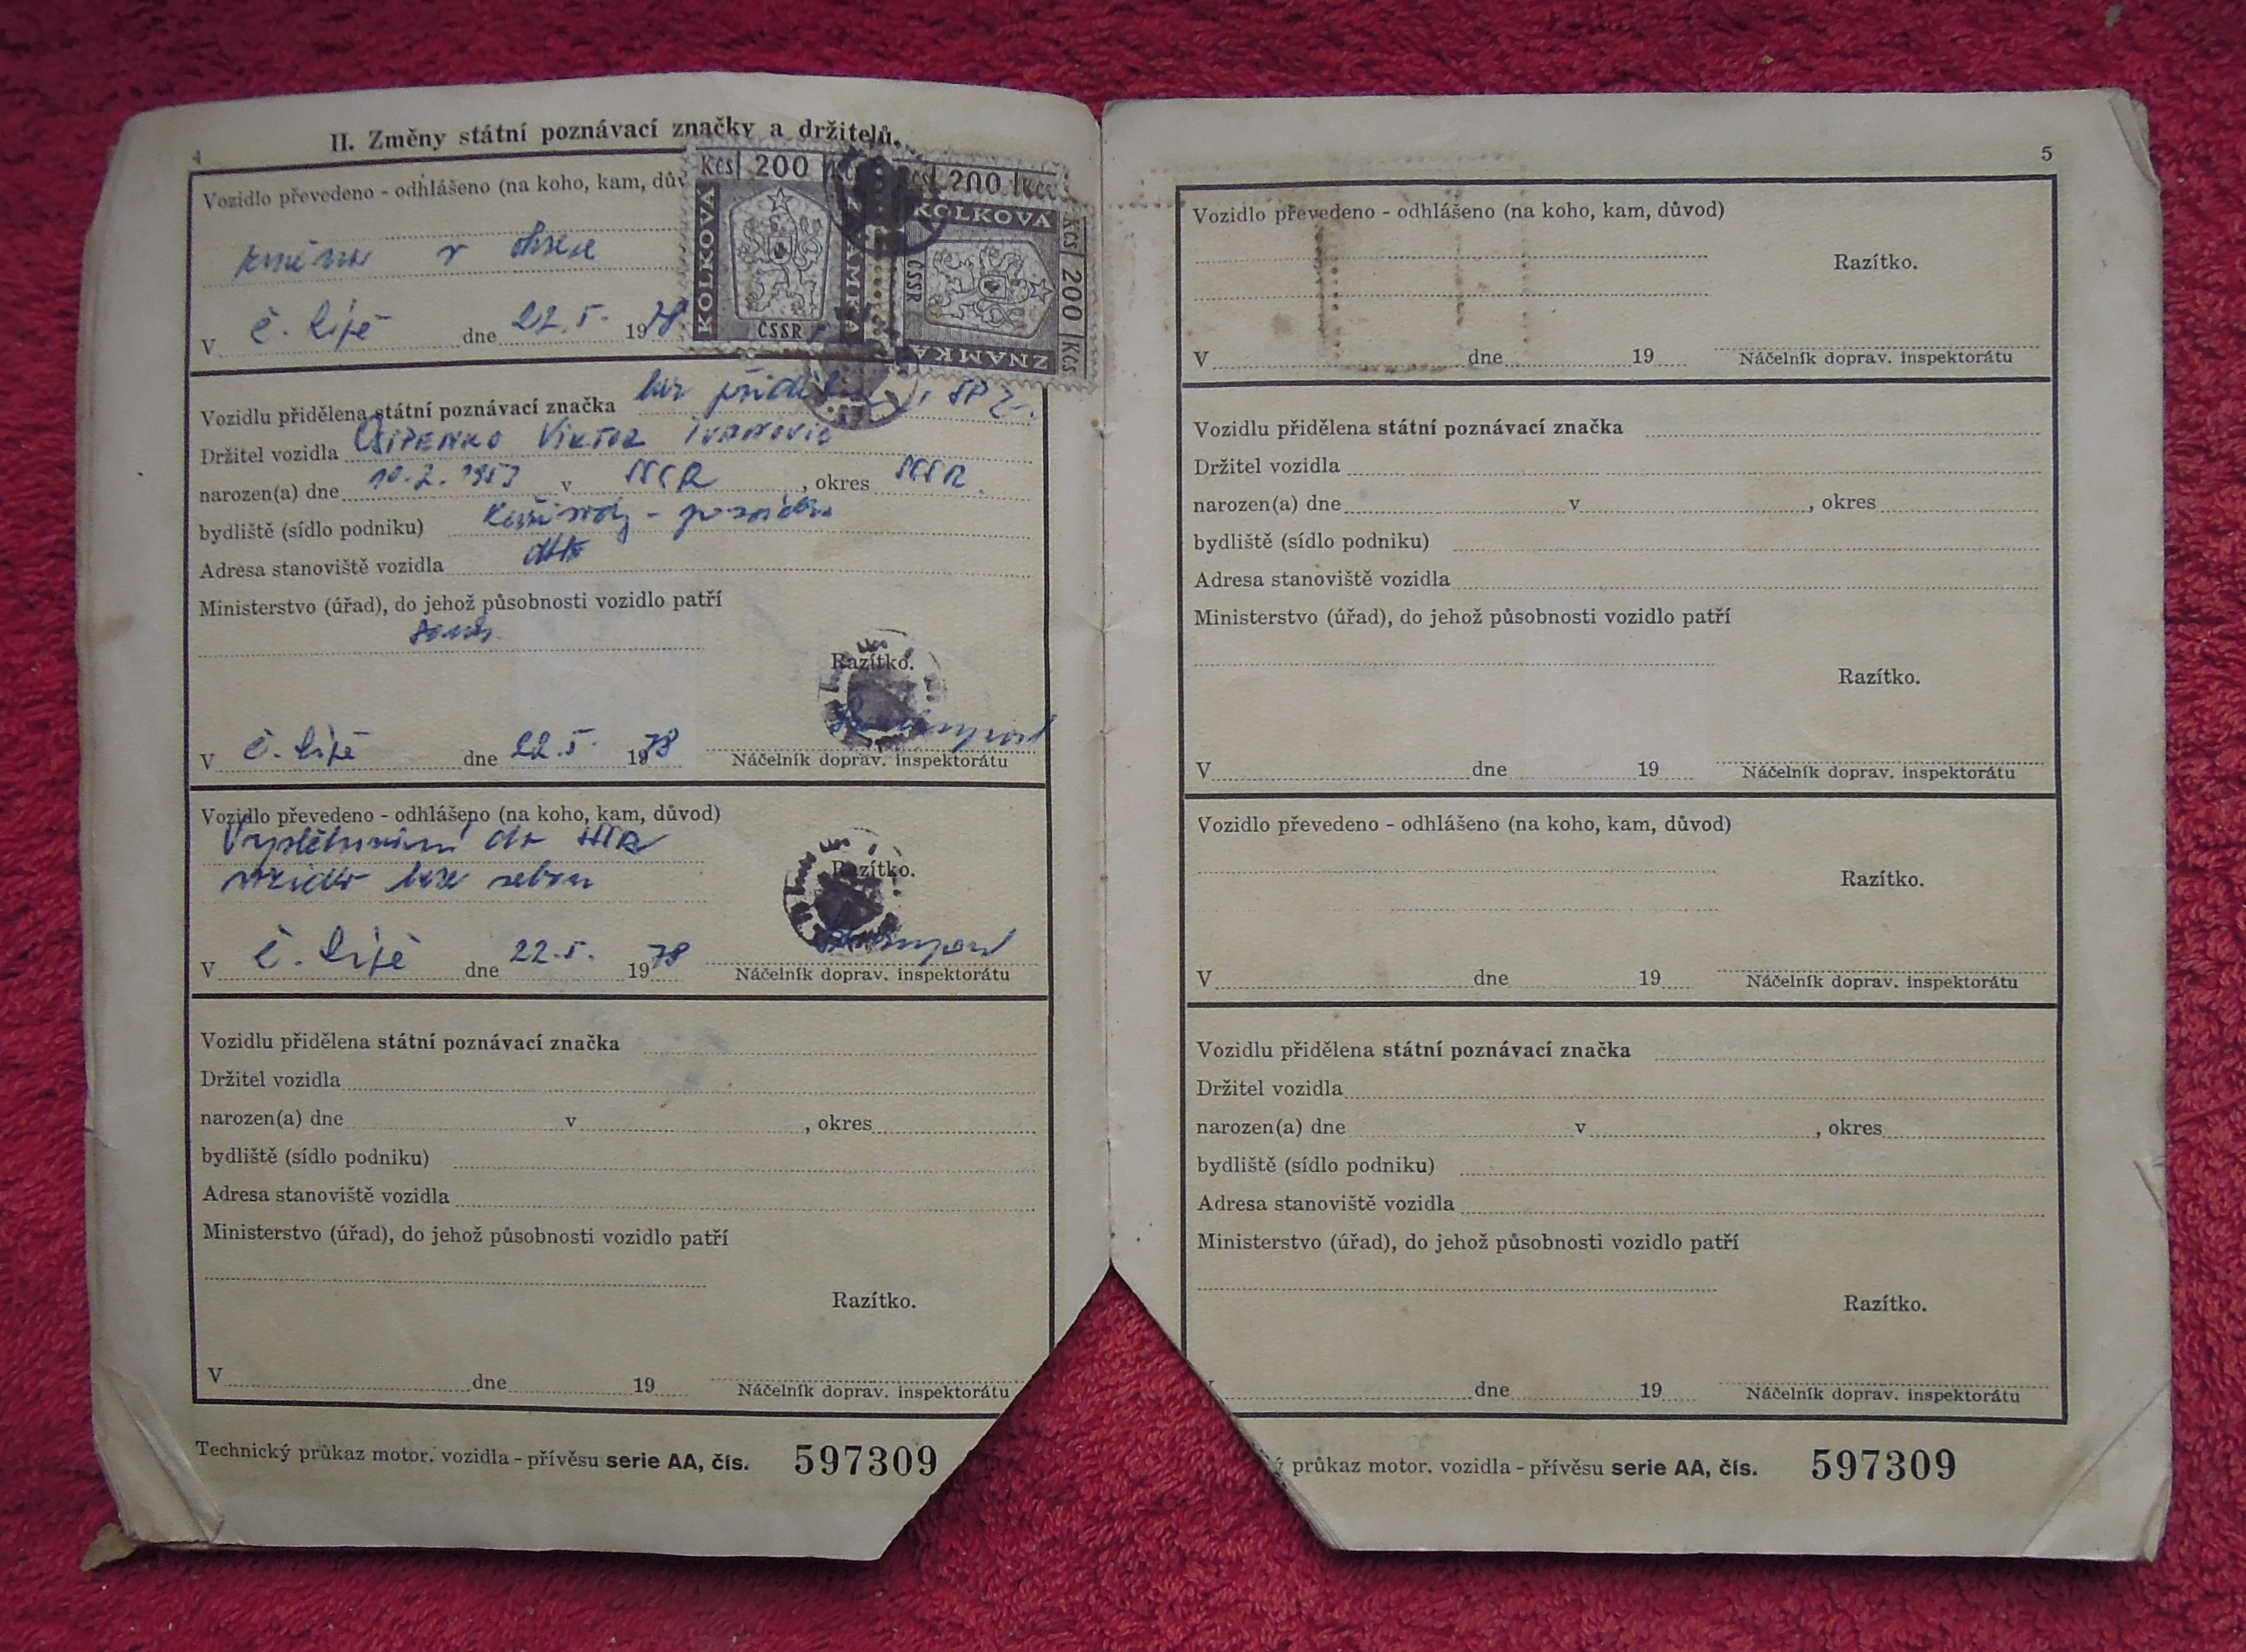 4
II. Změny státní poznávací značky a držitelů.
Vozidlo převedeno - odhlášeno (na koho, kam, dův
změna v okrese
V Č. Lípě dne 22. 5. 1978
Kčs 200 Kčs
KOLKOVÁ
ZNÁMKA
ČSSR
Kčs 200 Kčs
KOLKOVÁ
Kčs 200 Kčs
ČSSR
ZNÁMKA
Vozidlu přidělena státní poznávací značka bez SPZ
Držitel vozidla OSIPENKO VIKTOR IVANOVIČ
narozen(a) dne 10. 2. 1953 v SSSR, okres SSSR
bydliště (sídlo podniku)
Adresa stanoviště vozidla dtto
Ministerstvo (úřad), do jehož působnosti vozidlo patří
soukr.
Razítko.
V Č. Lípě dne 22. 5. 1978 Náčelník doprav. inspektorátu
Vozidlo převedeno - odhlášeno (na koho, kam, důvod)
Vystěhování do
vozidlo bere sebou
Razítko.
V Č. Lípě dne 22. 5. 1978 Náčelník doprav. inspektorátu
Vozidlu přidělena státní poznávací značka
Držitel vozidla
narozen(a) dne v , okres
bydliště (sídlo podniku)
Adresa stanoviště vozidla
Ministerstvo (úřad), do jehož působnosti vozidlo patří
Razítko.
V dne 19 Náčelník doprav. inspektorátu
Technický průkaz motor. vozidla - přívěsu serie AA, čís. 597309
5
Vozidlo převedeno - odhlášeno (na koho, kam, důvod)
Razítko.
V dne 19 Náčelník doprav. inspektorátu
Vozidlu přidělena státní poznávací značka
Držitel vozidla
narozen(a) dne v , okres
bydliště (sídlo podniku)
Adresa stanoviště vozidla
Ministerstvo (úřad), do jehož působnosti vozidlo patří
Razítko.
V dne 19 Náčelník doprav. inspektorátu
Vozidlo převedeno - odhlášeno (na koho, kam, důvod)
Razítko.
V dne 19 Náčelník doprav. inspektorátu
Vozidlu přidělena státní poznávací značka
Držitel vozidla
narozen(a) dne v , okres
bydliště (sídlo podniku)
Adresa stanoviště vozidla
Ministerstvo (úřad), do jehož působnosti vozidlo patří
Razítko.
dne 19 Náčelník doprav. inspektorátu
ý průkaz motor. vozidla - přívěsu serie AA, čís. 597309